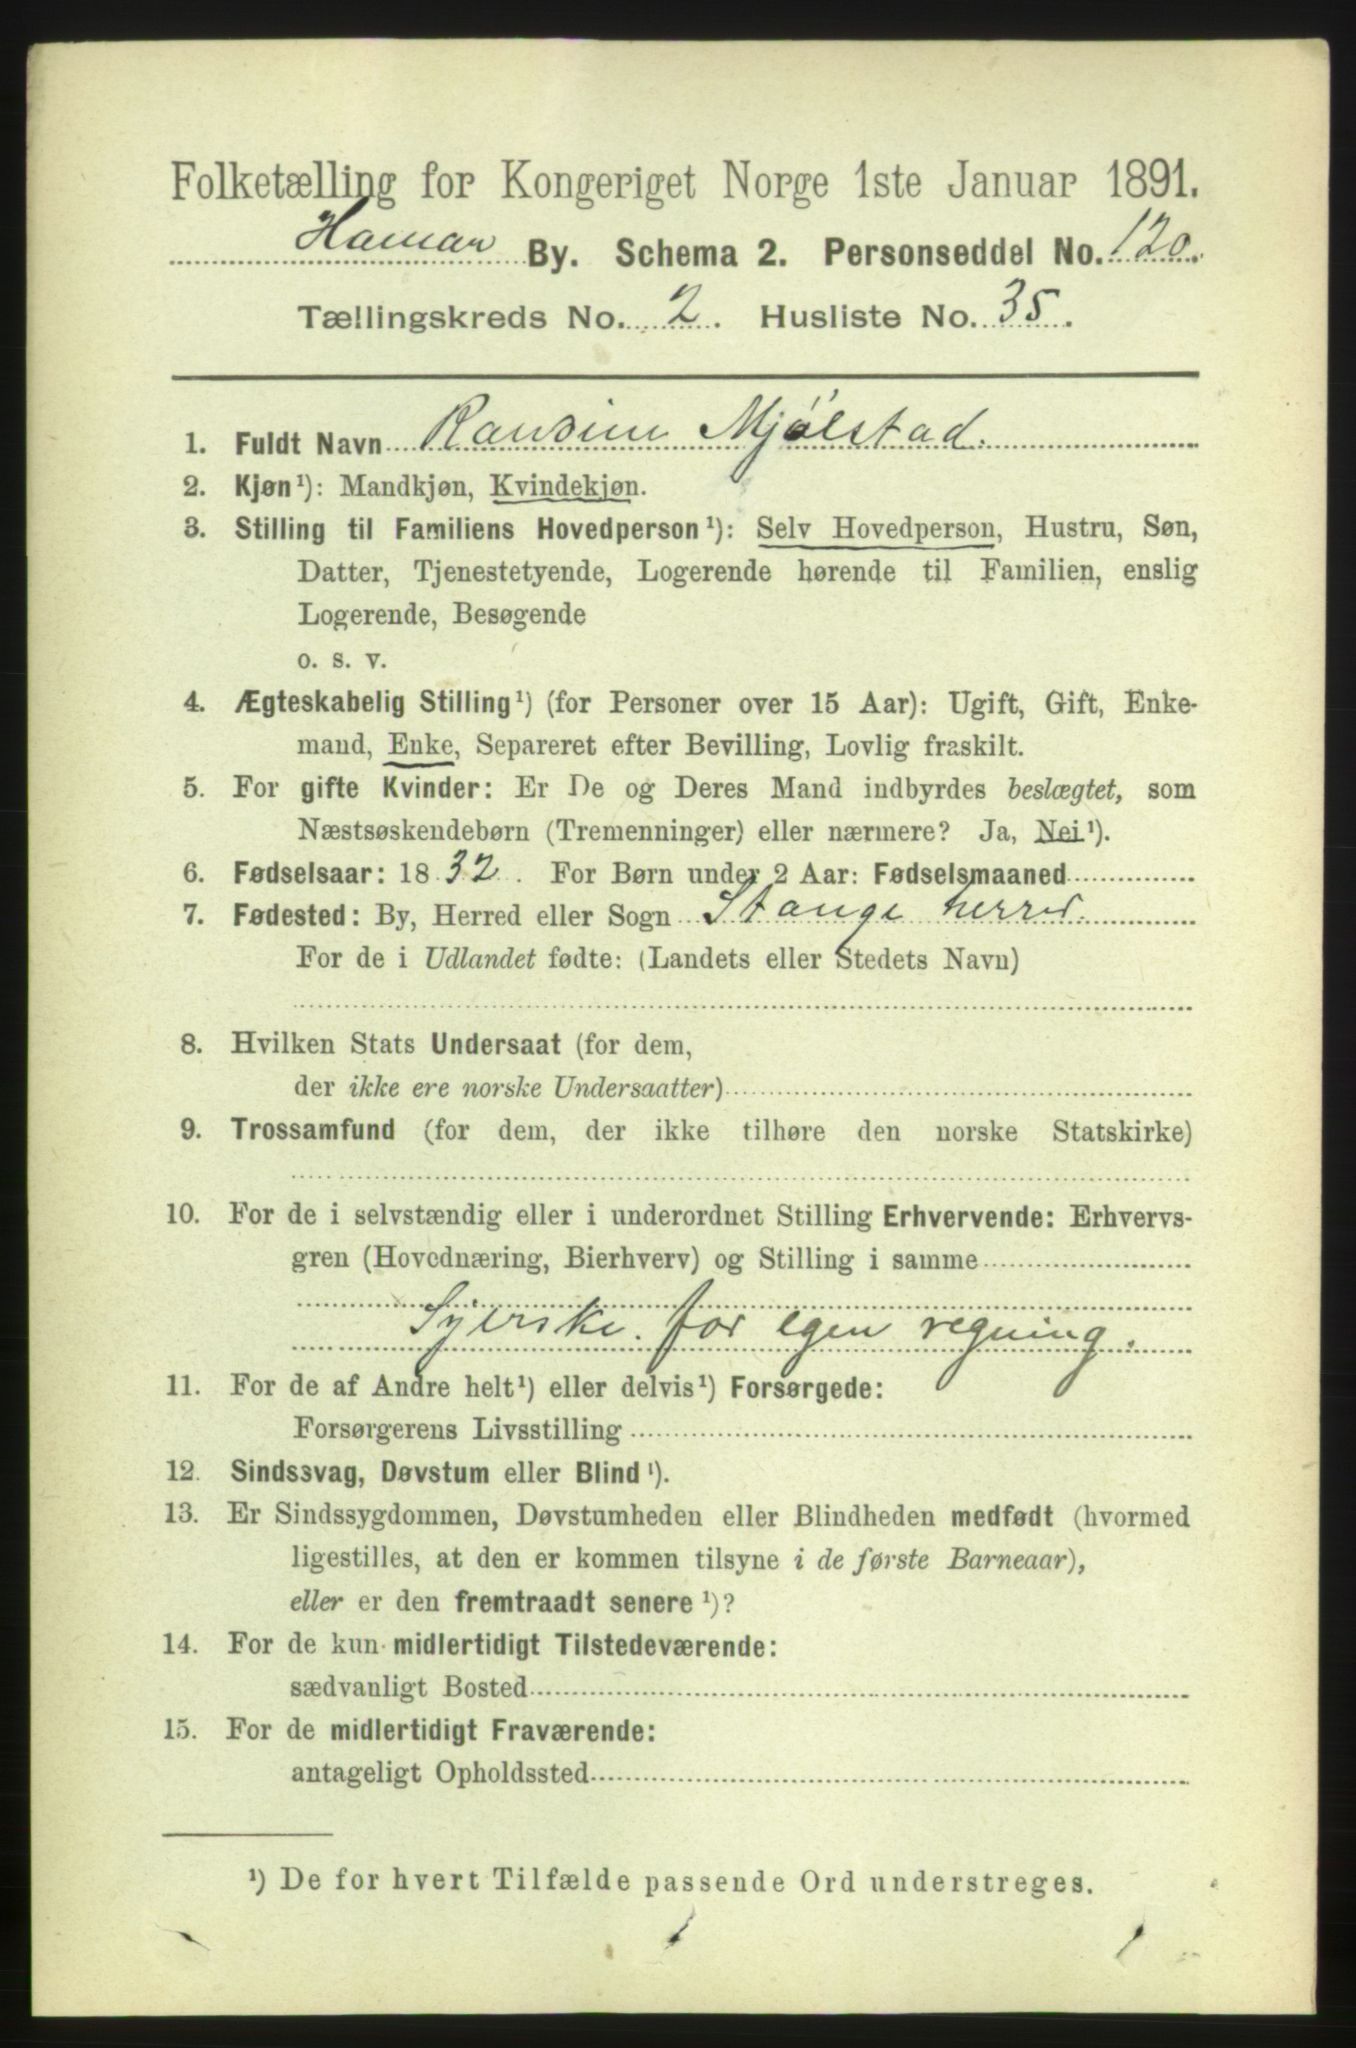 Folketælling for Kongeriget Norge 1ste Januar 1891.
Hamar By. Schema 2. Personseddel No. 120.
Tællingskreds No. 2. Husliste No. 35.
1. Fuldt Navn Mjølstad.
2. Kjøn¹): Mandkjøn, Kvindekjøn.
3. Stilling til Familiens Hovedperson¹): Selv Hovedperson, Hustru, Søn,
Datter, Tjenestetyende, Logerende hørende til Familien, enslig
Logerende, Besøgende
o. s. v.
4. Ægteskabelig Stilling¹) (for Personer over 15 Aar): Ugift, Gift, Enke-
mand, Enke, Separeret efter Bevilling, Lovlig fraskilt.
5. For gifte Kvinder: Er De og Deres Mand indbyrdes beslægtet, som
Næstsøskendebørn (Tremenninger) eller nærmere? Ja, Nei¹).
6. Fødselsaar: 1832. For Børn under 2 Aar: Fødselsmaaned
7. Fødested: By, Herred eller Sogn Stange herred.
For de i Udlandet fødte: (Landets eller Stedets Navn)
8. Hvilken Stats Undersaat (for dem,
der ikke ere norske Undersaatter)
9. Trossamfund (for dem, der ikke tilhøre den norske Statskirke)
10. For de i selvstændig eller i underordnet Stilling Erhvervende: Erhvervs-
gren (Hovednæring, Bierhverv) og Stilling i samme
Syerske. for egen regning.
11. For de af Andre helt¹) eller delvis¹) Forsørgede:
Forsørgerens Livsstilling
12. Sindssvag, Døvstum eller Blind¹).
13. Er Sindssygdommen, Døvstumheden eller Blindheden medfødt (hvormed
ligestilles, at den er kommen tilsyne i de første Barneaar),
eller er den fremtraadt senere¹)?
14. For de kun midlertidigt Tilstedeværende:
sædvanligt Bosted
15. For de midlertidigt Fraværende:
antageligt Opholdssted
¹) De for hvert Tilfælde passende Ord understreges.